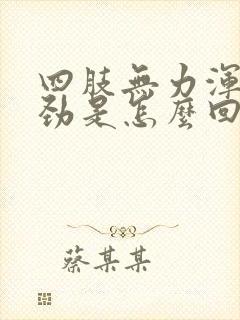 四肢無力渾
勁是怎麼回
蔡某某